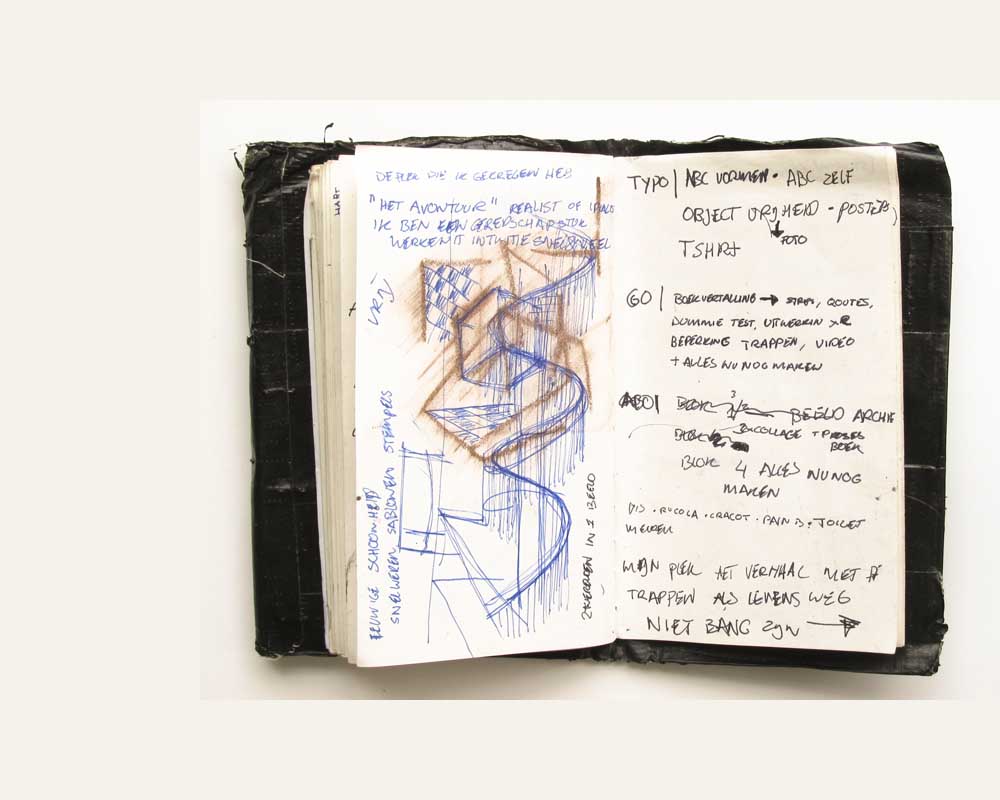 DE PLEK DIE IK GEKREGEN HEB
"HET AVONTUUR" REALIST OF
IK BEN EEN GEREEDSCHAPSTUK
WERKEN IT INTUITIE SNELSPWEEL
VRIJ
EEUWIGE SCHOONHEID
SNEL WERKEN, SABLONEN STEMPELS
2 WERELDEN IN 1 BEELD
HART
TYPO | ABC VORMEN · ABC ZELF
OBJECT VRIJHEID - POSTERS,
FOTO
TSHIRT
GO | BOEKVERTALLING → STRIPS, QOUTES,
DUMMIE TEST, UITWERKIN
BEPERKING TRAPPEN, VIDEO
+ ALLES NU NOG MAKEN
BEELD ARCHIF
COLLAGE + PROSES
BOEK
BLOK 4 ALLES NU NOG
MAKEN
· RUCOLA · CRACOT · PAIN · TOILET
MIJN PLEK HET VERHAAL MET
TRAPPEN ALS LEVENS WEG
NIET BANG ZYN →